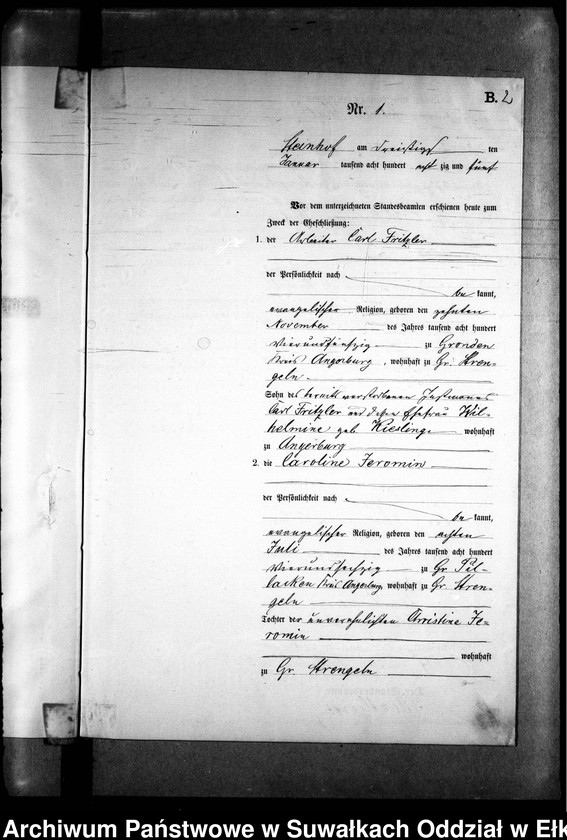 B. 2
Nr. 1.
Steinhof am dreißigs ten
Januar tausend acht hundert acht zig und fünf
Vor dem unterzeichneten Standesbeamten erschienen heute zum
Zweck der Eheschließung:
1. der Arbeiter Carl Fritzler
der Persönlichkeit nach
be kannt,
evangelischer Religion, geboren den zehnten
November des Jahres tausend acht hundert
vierundfünfzig zu Gronden
Kreis Angerburg, wohnhaft zu Gr. Stren-
geln
Sohn des bereits verstorbenen Instmannes
Carl Fritzler und dessen Ehefrau Wil-
helmine geb. Kieslinge wohnhaft
zu Angerburg
2. die Caroline Jeromin
der Persönlichkeit nach
be kannt,
evangelischer Religion, geboren den achten
Juli des Jahres tausend acht hundert
vierundsechzig zu Gr Pil-
lacken Kreis Angerburg, wohnhaft zu Gr. Stren-
geln
Tochter der unverehelichten Christine Je-
romin
wohnhaft
zu Gr. Strengeln
Archiwum Państwowe w Suwałkach Oddział w Ełk